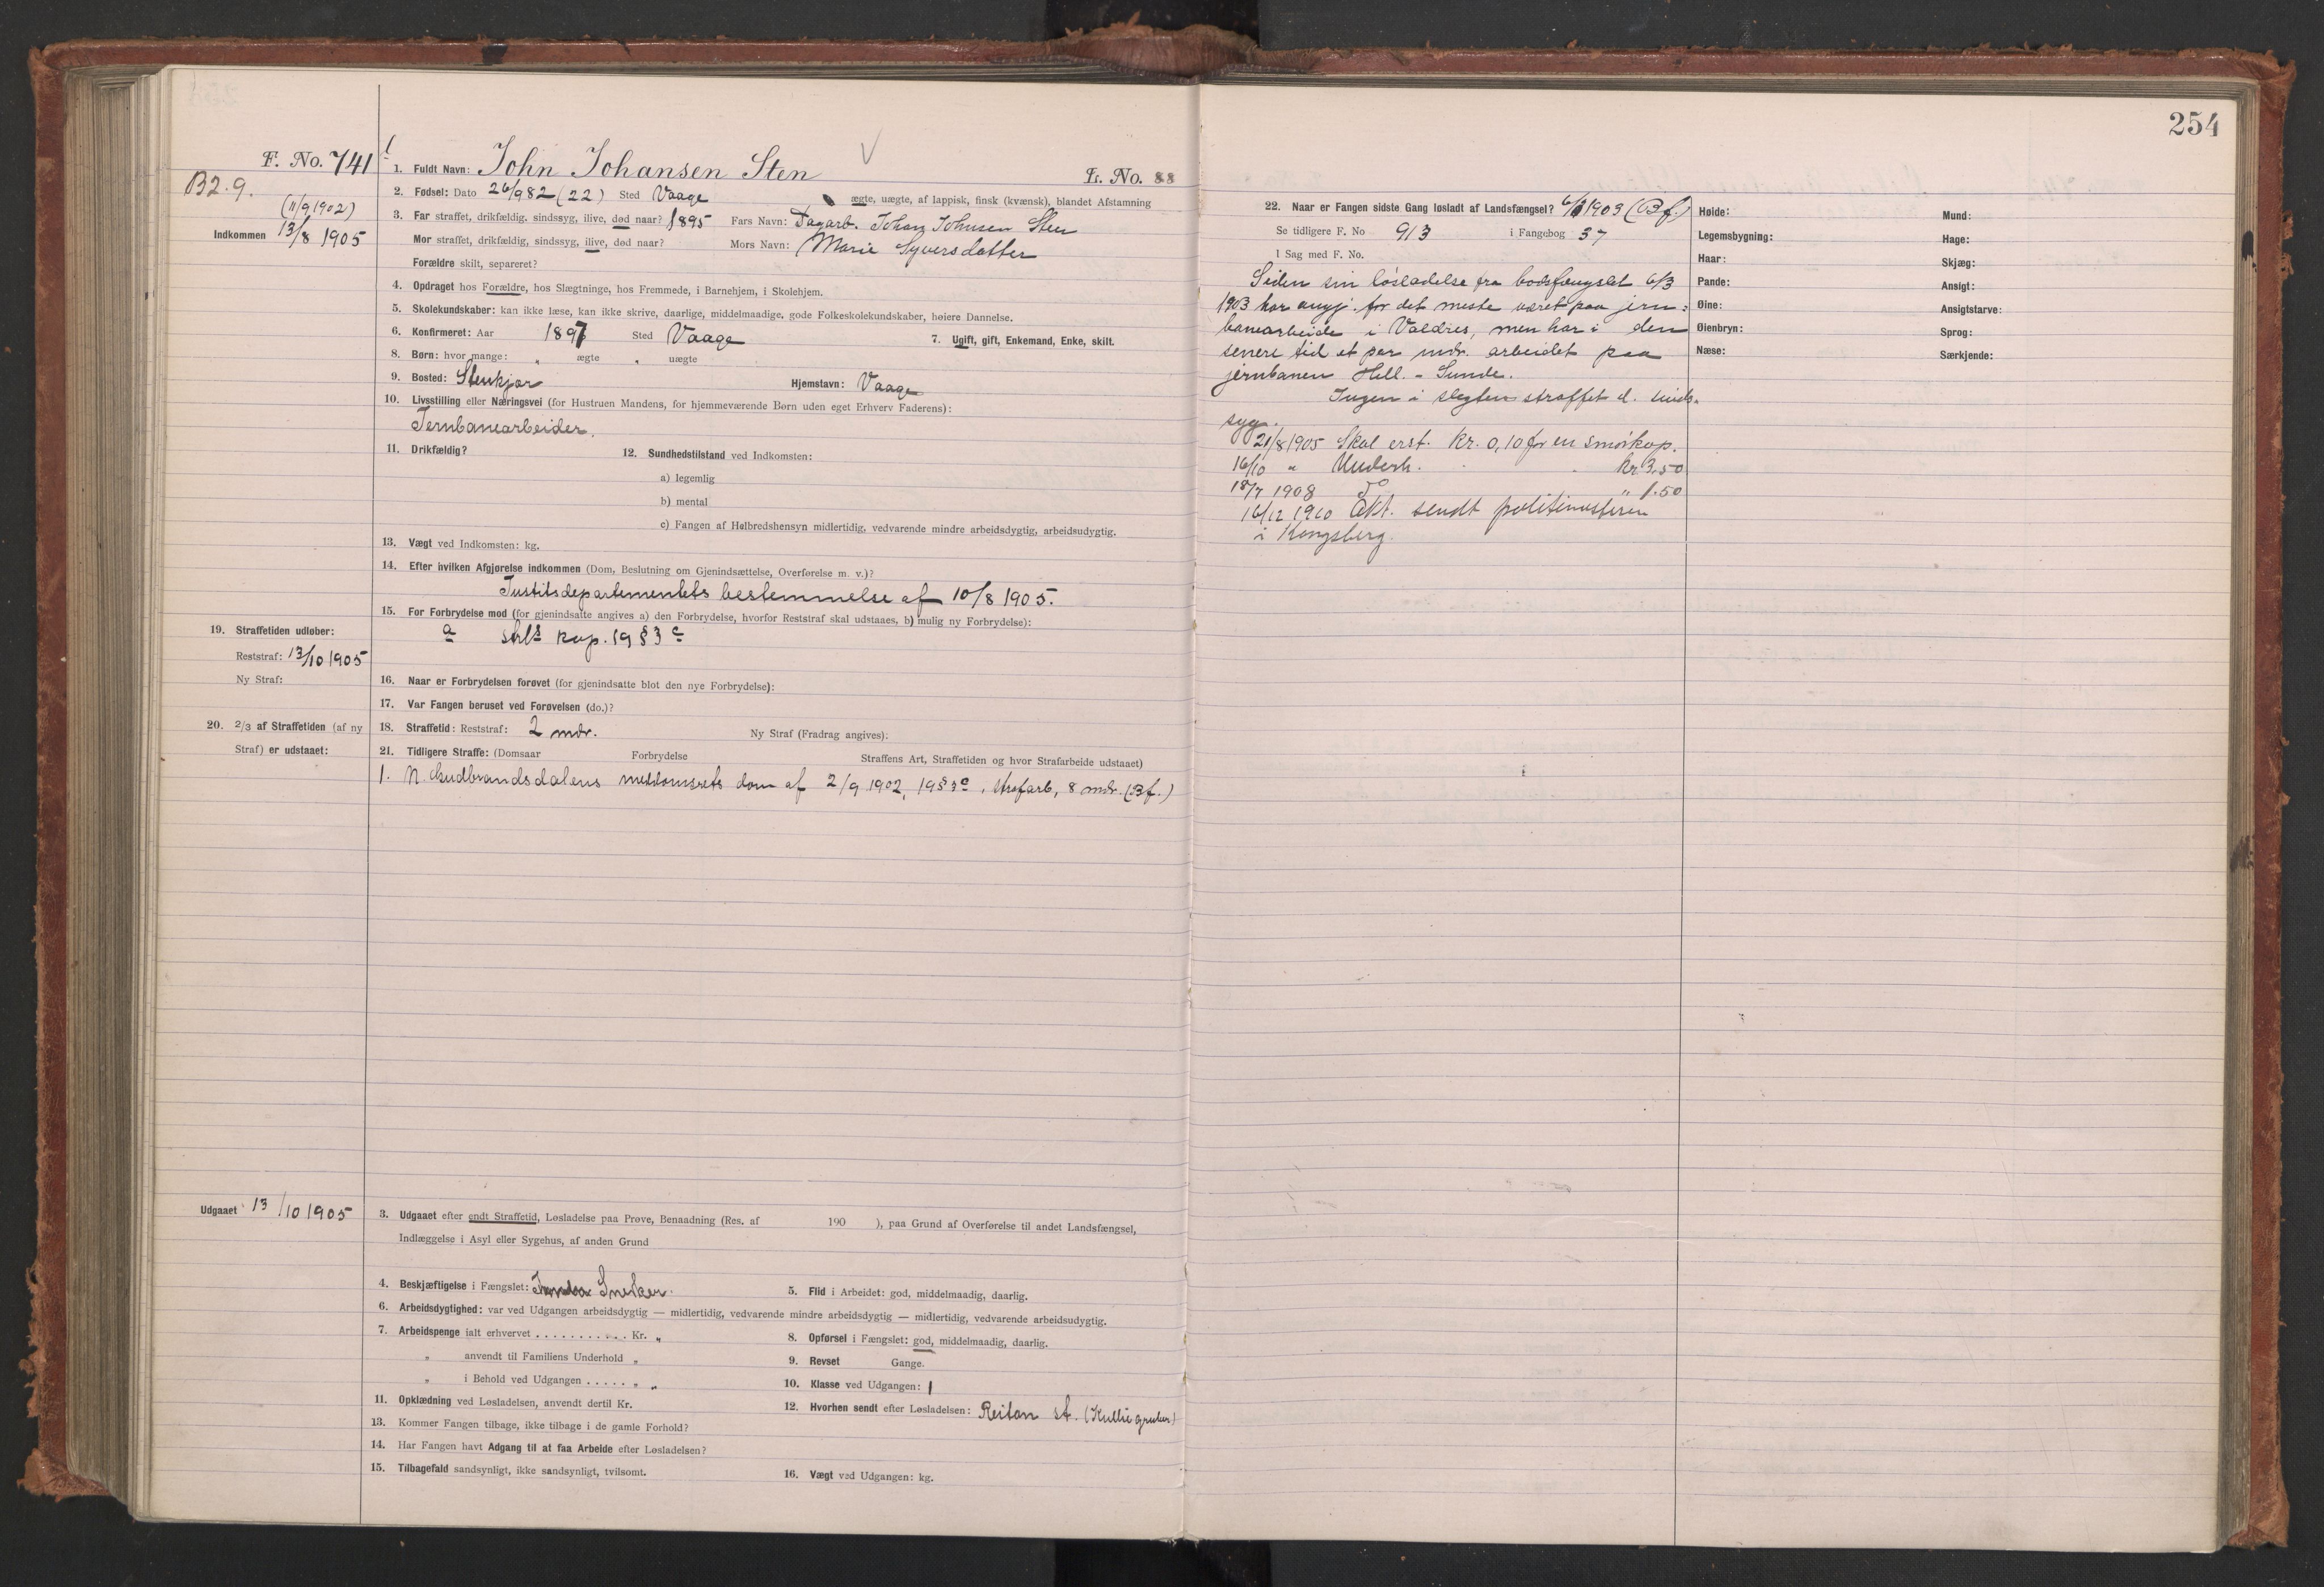 254
F. No. 741
B2.9.
(11/9 1902)
Indkommen 13/8 1905
1. Fuldt Navn: John Johansen Sten
L. No. 88
2. Fødsel: Dato 26/9 82 (22) Sted Vaage ægte, uægte, af lappisk, finsk (kvænsk), blandet Afstamning
3. Far straffet, drikfældig, sindssyg, ilive, død naar? 1895 Fars Navn: Dagarb. Johan Johnsen Sten
Mor straffet, drikfældig, sindssyg, ilive, død naar? Mors Navn: Marie Syversdatter
Forældre skilt, separeret?
4. Opdraget hos Forældre, hos Slægtninge, hos Fremmede, i Barnehjem, i Skolehjem.
5. Skolekundskaber: kan ikke læse, kan ikke skrive, daarlige, middelmaadige, gode Folkeskolekundskaber, høiere Dannelse.
6. Konfirmeret: Aar 1897 Sted Vaage 7. Ugift, gift, Enkemand, Enke, skilt.
8. Børn: hvor mange: „ ægte „ uægte
9. Bosted: Stenkjær Hjemstavn: Vaage
10. Livsstilling eller Næringsvei (for Hustruen Mandens, for hjemmeværende Børn uden eget Erhverv Faderens):
Jernbanearbeider.
11. Drikfældig? 12. Sundhedstilstand ved Indkomsten:
a) legemlig
b) mental
c) Fangen af Helbredshensyn midlertidig, vedvarende mindre arbeidsdygtig, arbeidsudygtig.
13. Vægt ved Indkomsten: kg.
14. Efter hvilken Afgjørelse indkommen (Dom, Beslutning om Gjenindsættelse, Overførelse m. v.)?
Justitsdepartementets bestemmelse af 10/8 1905.
15. For Forbrydelse mod (for gjenindsatte angives a) den Forbrydelse, hvorfor Reststraf skal udstaaes, b) mulig ny Forbrydelse):
a strls kap. 19 § 3 c
19. Straffetiden udløber:
Reststraf: 13/10 1905
Ny Straf:
16. Naar er Forbrydelsen forøvet (for gjenindsatte blot den nye Forbrydelse):
17. Var Fangen beruset ved Forøvelsen (do.)?
20. 2/3 af Straffetiden (af ny
Straf) er udstaaet:
18. Straffetid: Reststraf: 2 mdr. Ny Straf (Fradrag angives):
21. Tidligere Straffe: (Domsaar Forbrydelse Straffens Art, Straffetiden og hvor Strafarbeide udstaaet)
1. N. Gudbrandsdalens meddomsrets dom af 2/9 1902, 19 § 3 c, strafarb, 8 mdr. (Bf.)
Udgaaet 13/10 1905
3. Udgaaet efter endt Straffetid, Løsladelse paa Prøve, Benaadning (Res. af 190 ), paa Grund af Overførelse til andet Landsfængsel,
Indlæggelse i Asyl eller Sygehus, af anden Grund
4. Beskjæftigelse i Fængslet: Snedker. 5. Flid i Arbeidet: god, middelmaadig, daarlig.
6. Arbeidsdygtighed: var ved Udgangen arbeidsdygtig — midlertidig, vedvarende mindre arbeidsdygtig — midlertidig, vedvarende arbeidsudygtig.
7. Arbeidspenge ialt erhvervet . . . . . . . . . . . Kr. „ 8. Opførsel i Fængslet: god, middelmaadig, daarlig.
„ anvendt til Familiens Underhold „ 9. Revset Gange.
„ i Behold ved Udgangen . . . . . „ „ 10. Klasse ved Udgangen: 1
11. Opklædning ved Løsladelsen, anvendt dertil Kr. 12. Hvorhen sendt efter Løsladelsen: Reitan st.
13. Kommer Fangen tilbage, ikke tilbage i de gamle Forhold?
14. Har Fangen havt Adgang til at faa Arbeide efter Løsladelsen?
15. Tilbagefald sandsynligt, ikke sandsynligt, tvilsomt. 16. Vægt ved Udgangen: kg.
22. Naar er Fangen sidste Gang løsladt af Landsfængsel? 6/3 1903 (Bf.)
Se tidligere F. No 913 i Fangebog 37
I Sag med F. No.
Siden sin løsladelse fra bodsfængslet 6/3
1903 har angj. for det meste været paa jern:
banearbeide i Valdres, men har i den
senere tid et par mdr. arbeidet paa
jernbanen Hell. - Sunde.
Ingen i slegten straffet el. sinds-
syg.
21/8 1905 Skal erst. Kr. 0,10 for en smørkop.
16/10 " Underh. kr 3.50
18/7 1908 Do " 1.50
16/12 1910 Akt. sendt politimesteren
i Kongsberg.
Høide: Mund:
Legemsbygning: Hage:
Haar: Skjæg:
Pande: Ansigt:
Øine: Ansigtstarve:
Øienbryn: Sprog:
Næse: Særkjende: